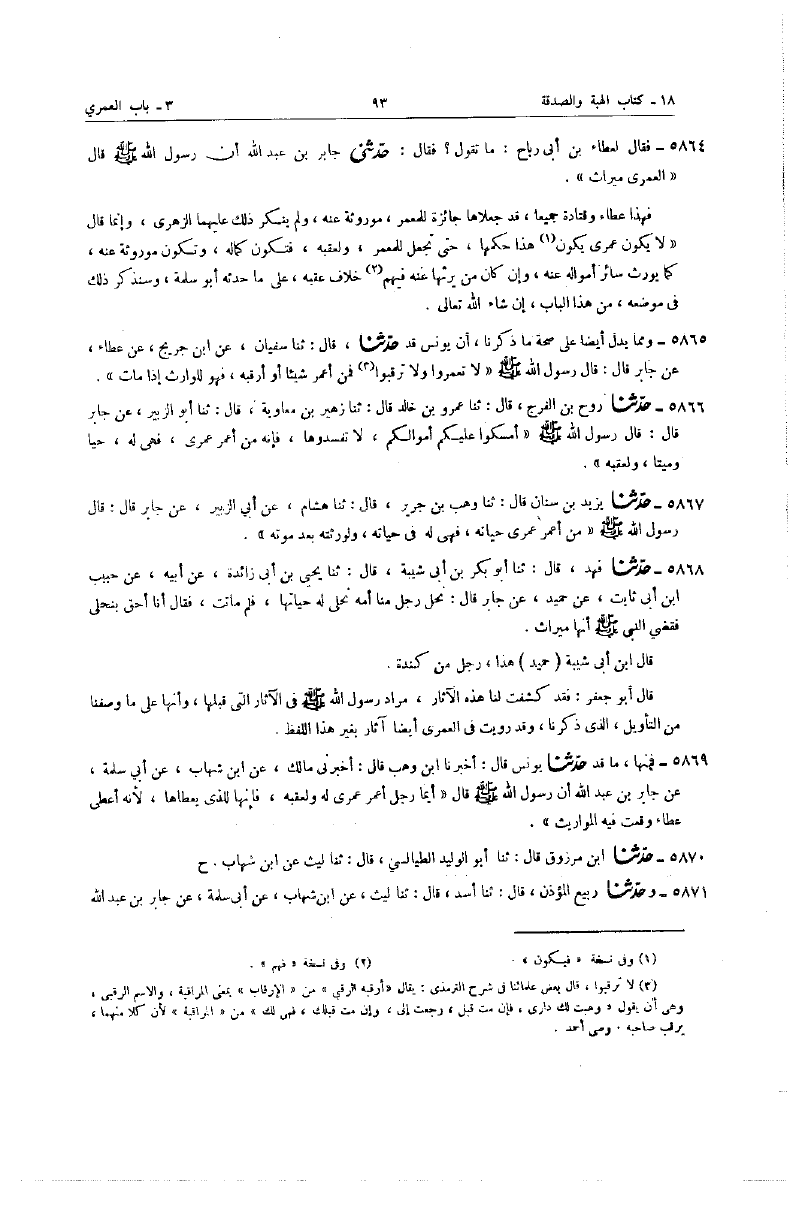 ١٨ ـ كتاب الهبة والصدقة ٩٣ ٣ ـ باب العمري
٥٨٦٤ ـ فقال لعطاء بن أبى رباح : ما تقول ؟ فقال : حدّثنى جابر بن عبد الله أن رسول الله ﷺ قال
« العمرى ميراث » .
فهذا عطاء وقتادة جميعا ، قد جعلاها جائزة للمعمر ، موروثة عنه ، ولم ينكر ذلك عليهما الزهرى ، وإنما قال
« لا يكون عمرى يكون(١) هذا حكمها ، حتى تجعل للمعمر ، ولعقبه ، فتكون كماله ، وتكون موروثة عنه ،
كما يورث سائر أمواله عنه ، وإن كان من يرثها عنه فيهم(٢) خلاف عقبه ، على ما حدثه أبو سلمة ، وسنذكر ذلك
فى موضعه ، من هذا الباب ، إن شاء الله تعالى .
٥٨٦٥ ـ ومما يدل أيضا على صحة ما ذكرنا ، أن يونس قد حدّثنا ، قال : ثنا سفيان ، عن ابن جريج ، عن عطاء ،
عن جابر قال : قال رسول الله ﷺ « لا تعمروا ولا ترقبوا(٣) فمن أعمر شيئا أو أرقبه ، فهو للوارث إذا مات » .
٥٨٦٦ ـ حدّثنا روح بن الفرج ، قال : ثنا عمرو بن خالد قال : ثنا زهير بن معاوية ، قال : ثنا أبو الزبير ، عن جابر
قال : قال رسول الله ﷺ « أمسكوا عليكم أموالكم ، لا تفسدوها ، فإنه من أعمر عمرى ، فهى له ، حيا
وميتا ، ولعقبه » .
٥٨٦٧ ـ حدّثنا يزيد بن سنان قال : ثنا وهب بن جرير ، قال : ثنا هشام ، عن أبي الزبير ، عن جابر قال : قال
رسول الله ﷺ « من أعمر عمرى حياته ، فهى له فى حياته ، ولورثته بعد موته » .
٥٨٦٨ ـ حدّثنا فهد ، قال : ثنا أبو بكر بن أبى شيبة ، قال : ثنا يحيى بن أبى زائدة ، عن أبيه ، عن حبيب
ابن أبى ثابت ، عن حميد ، عن جابر قال : نحل رجل منا أمه نحلى له حياتها ، فلم ماتت ، فقال أنا أحق بنحلى
فقضي النبي ﷺ أنها ميراث .
قال ابن أبى شيبة ( حميد ) هذا ، رجل من كندة .
قال أبو جعفر : فقد كشفت لنا هذه الآثار ، مراد رسول الله ﷺ فى الآثار التى قبلها ، وأنها على ما وصفنا
من التأويل ، الذى ذكرنا ، وقد رويت فى العمرى أيضا آثار بغير هذا اللفظ .
٥٨٦٩ ـ فمنها ، ما قد حدّثنا يونس قال : أخبرنا ابن وهب قال : أخبرنى مالك ، عن ابن شهاب ، عن أبي سلمة ،
عن جابر بن عبد الله أن رسول الله ﷺ قال « أيما رجل أعمر عمرى له ولعقبه ، فإنها للذى يعطاها ، لأنه أعطى
عطاء وقعت فيه المواريث » .
٥٨٧٠ ـ حدّثنا ابن مرزوق قال : ثنا أبو الوليد الطيالسي ، قال : ثنا ليث عن ابن شهاب . ح
٥٨٧١ ـ وحدّثنا ربيع المؤذن ، قال : ثنا أسد ، قال : ثنا ليث ، عن ابن شهاب ، عن أبى سلمة ، عن جابر بن عبد الله
(١) وفى نسخة « فيكون » . (٢) وفى نسخة « فهم » .
(٣) لا ترقبوا ، قال بعض علمائنا فى شرح الترمذى : يقال «أرقبه الرقبي» من « الإرقاب » بمعنى المراقبة ، والاسم الرقبى ،
وهى أن يقول « وهبت لك دارى ، فإن مت قبل ، رجعت إلى ، وإن مت قبلك ، فهى لك » من « المراقبة » لأن كلا منهما ،
يرقب صاحبه . وصى أحمد .